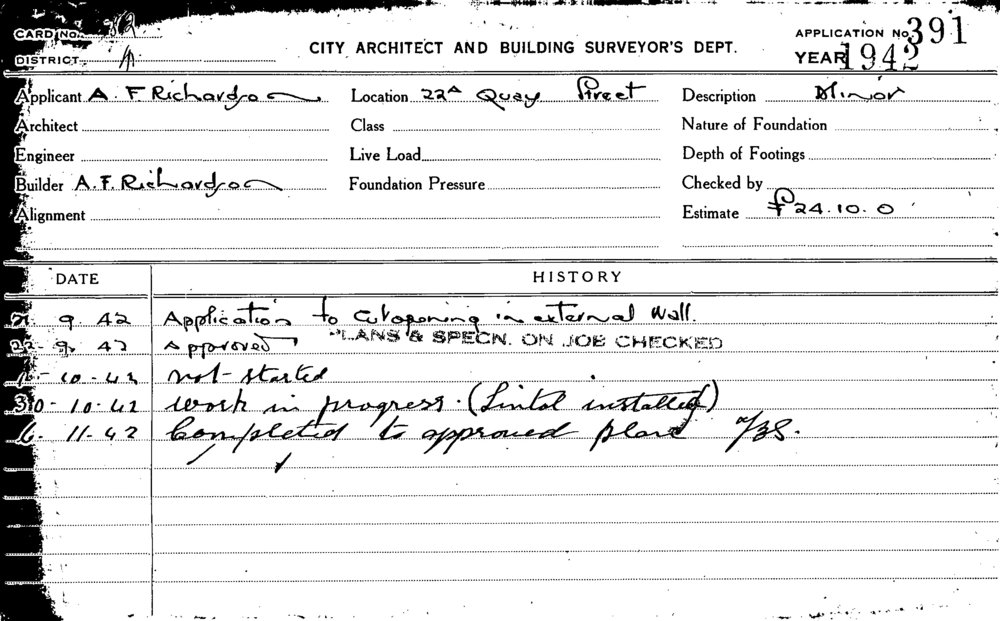 CARD No. 82
APPLICATION No. 391
CITY ARCHITECT AND BUILDING SURVEYOR'S DEPT.
DISTRICT A
YEAR 1942
Applicant A. F Richardson Location 22A Quay Street Description Minor
Architect Class Nature of Foundation
Engineer Live Load Depth of Footings
Builder A. F. Richardson Foundation Pressure Checked by
Alignment Estimate £24.10.0
DATE HISTORY
9. 42 Application to cut opening in external wall.
22. 9. 42 Approved PLANS & SPECN. ON JOB CHECKED
10-42 not started
30-10-42 work in progress. (Lintol installed)
6- 11-42 Completed to approved plans